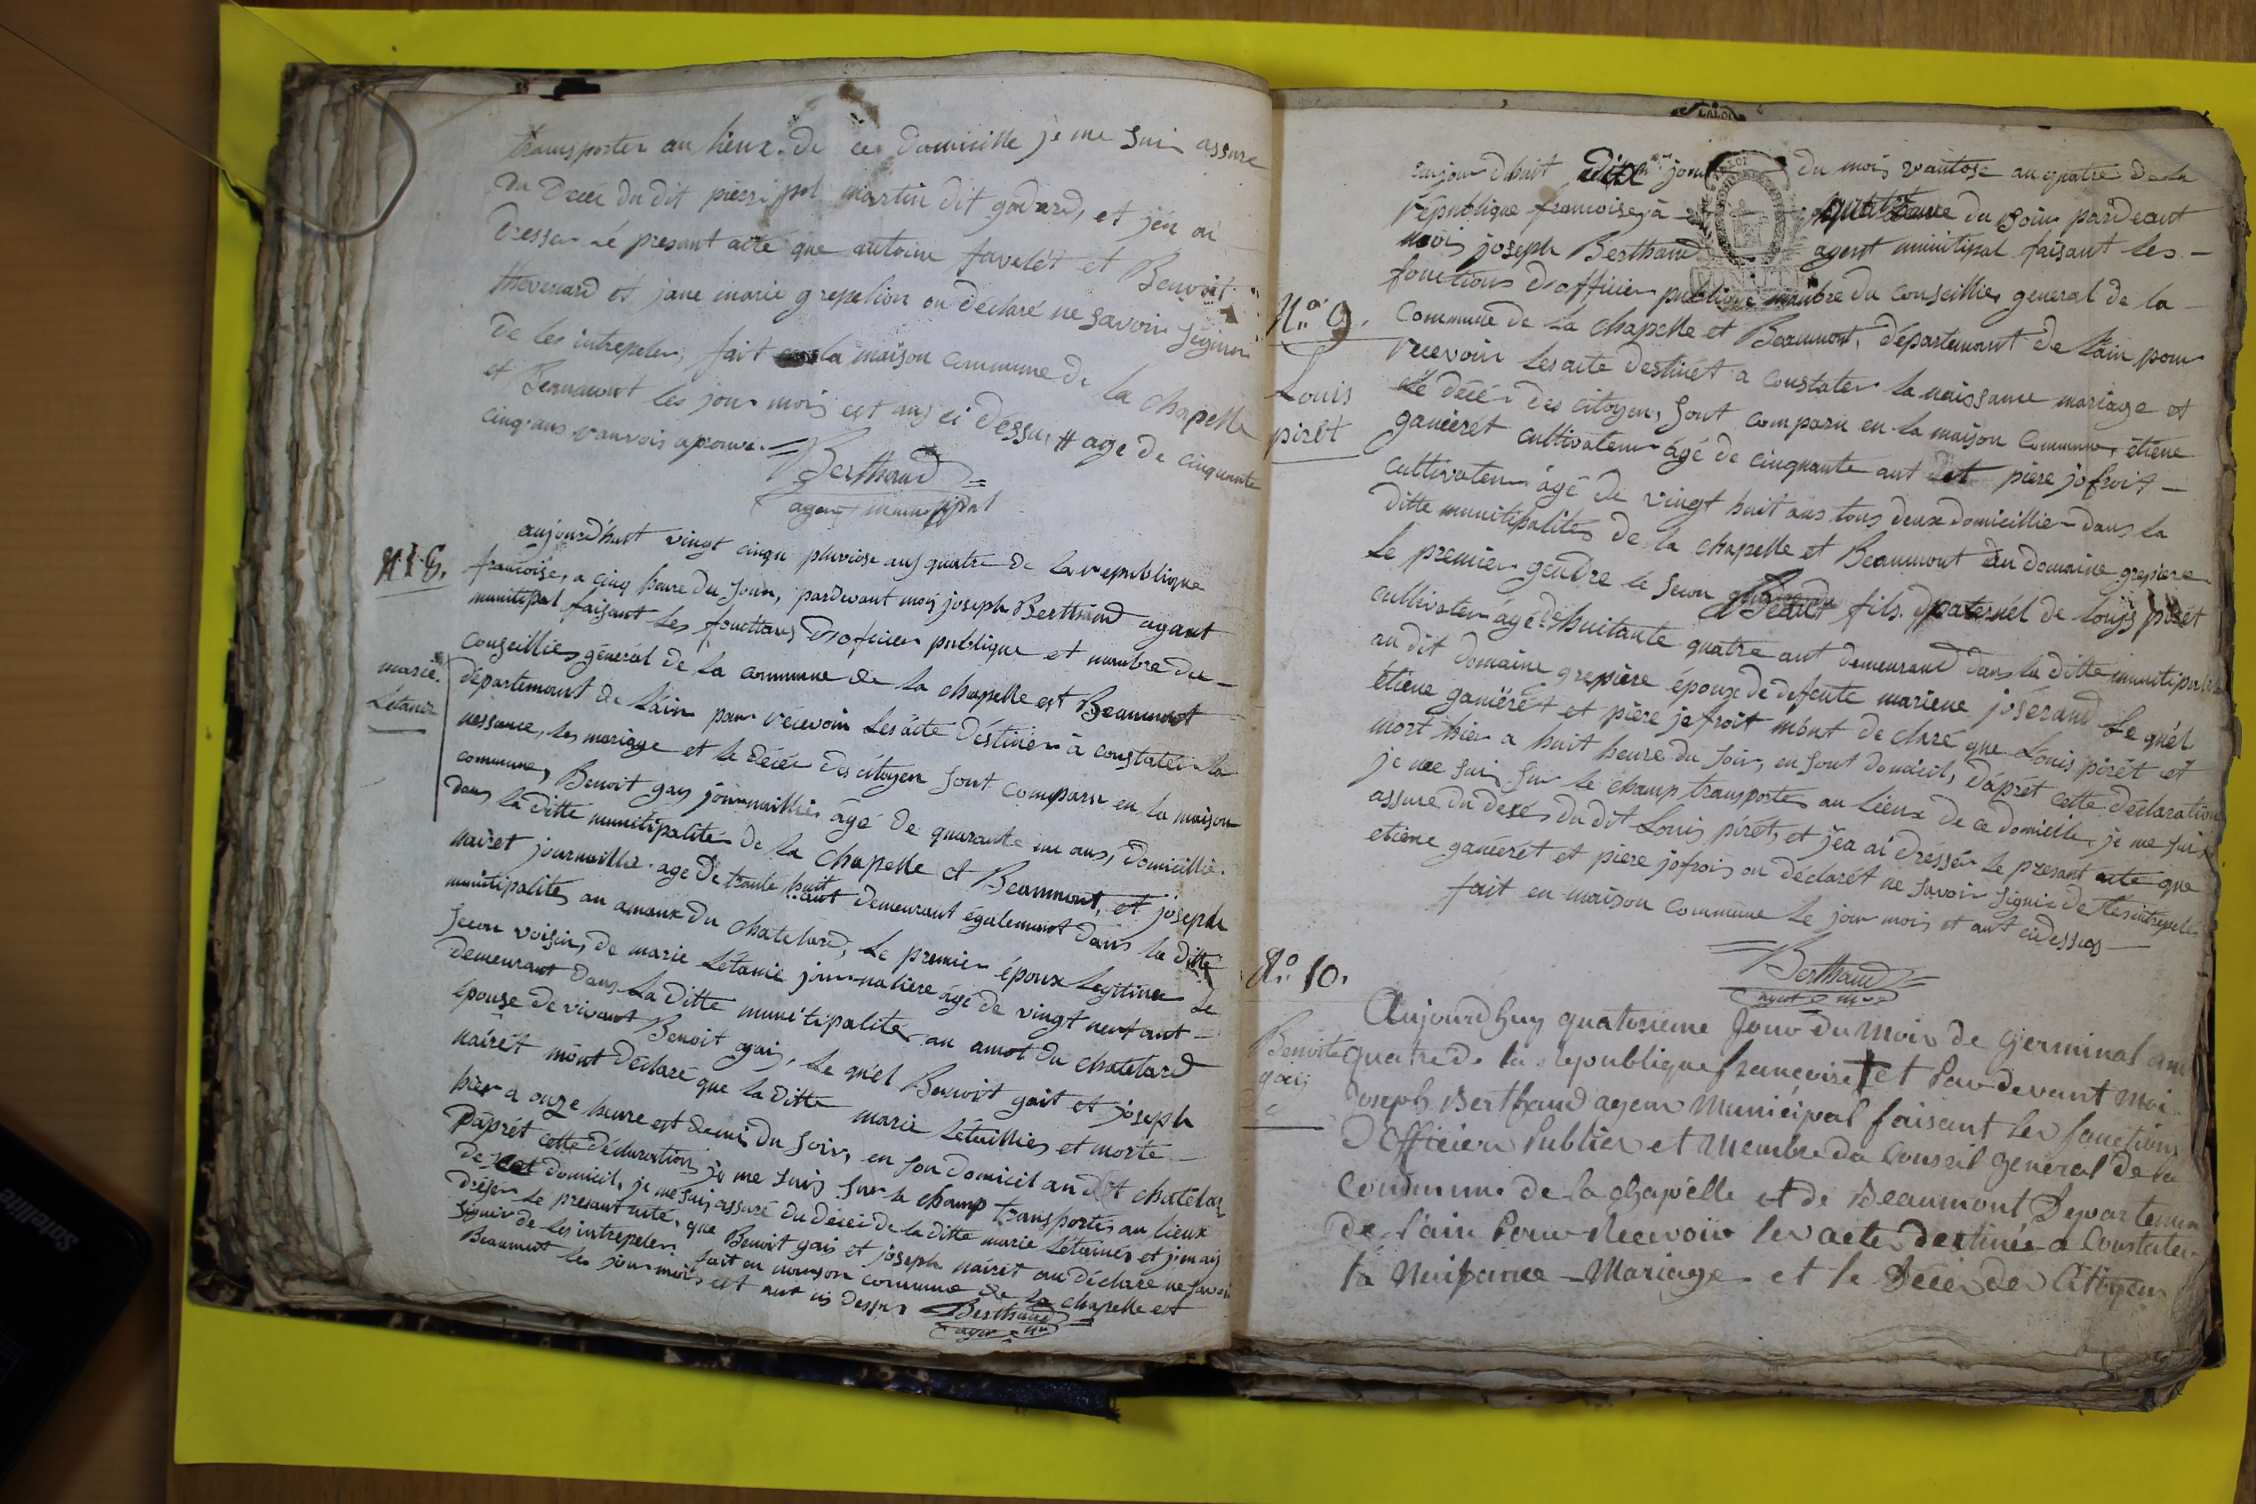 transporter au lieux de ce domicille je me suis assure
du décé du dit pierri martin dit godard, et jen ai
dresser le present acte que antoine favelét et Benoit
thevenard et jane marie grepelion on déclaré ne savoir signer
de les intrepeler, fait la maison commune de la chapelle
et Beaumont les jour mois est ans ci déssu # age de cinquante
cinq ans vanvois aprouve.
Berthaud
agent municipal
N.º 8.
marie
Letanie
aujourdhuit vingt cinqu pluviose ans quatre de la republique
francoise, a cinq heure du soir, pardevant moi joseph Berthaud agant
munitipal faisant les fonctions d'oficier publique et manbre du
conseillier général de la commune de la chapelle est Beaumont
département de l'ain pour récevoir les acte déstiner à constater la
nessance, les mariage et le décéc des citoyen sont comparu en la maison
commune, Benoit gay journaillier âgé de quarante un ans, domicillié
dans la ditte munitipalité de la chapelle et Beaumont, et joseph
nairet journaillier age de trante huit ant demeurant également dans la ditte
munitipalités au amaux du chatelard, le premier époux legitime le
secon voisin, de marie létanie journaliere âgé de vingt neuf ant
demeurant dans la ditte munitipalite au amot du chatelard
épouse de vivant Benoit gai, le quél Benoit gait et joseph
nairét mónt déclaré que la ditte marie letaillier et morte
hier a onze heure est demi du soir, en son domicil au dit chatelar
d'aprét cette déclaration je me suis sur le champ transporter au lieux
de cet domicil, je me suis assuré du décéc de la ditte marie létanies et jen ais
dréser le presant acté, que Benoit gais et joseph nairet on déclaré ne savoir
signer de les intrepeler, fait en maison commune de la chapelle est
Beaumont les jour mois est ant ci dessus
Berthaud
agen mu
aujourdhuit dix jour du mois vantose an quatre de la
république francoise, à quatre heure du soir pardeant
moi joseph Berthaud agent munitipal faisant les
fonctions d'officier publique manbre du conseillier general de la
N.º 9.
Louis
pirét
commune de la chapelle et Beaumont, département de l'ain pour
recevoir les acte destinét a constater la naissance mariage et
le décé des citoyen, sont comparu en la maison commune, étiene
ganieret cultivateur âgé de cinquante ant et piere jofroit
cultivateur âgé de vingt huit ans tous deux domicillier dans la
ditte munitipalités de la chapelle et Beaumont au domaine grepiere
le premier gendre le secon petit fils paternél de louis pirét
cultivater âgé d'huitante quatre ant demeurand dans la ditte munitipalité
au dit domaine grepière epoux de defente mariene joserand le quél
étiene ganierét et piere jofroit mónt declaré que Louis pirét et
mort hier a huit heure du soir, en sont domicil, d'aprét cette declaration
je me suis sur le champ transporter au lieux de ce domicile, je me suis
assure du decé du dit Louis pirét, et jéa ai dressér le presant acte que
etiene ganieret et piere jofroi on declarét ne savoir signer de les intrepelé
fait en maison commune le jour mois et ant cidessus
Berthaud
agent mu
N.º 10.
Benoite
gay
Aujourdhuy quatorieme Jour du Mois de Germinal an
quatre de la republique francaise et Par devant Moi
Joseph Berthaud agent Municipal faisant les fonctions
d'Officier Publier et Membre du Conseil General de la
Commune de la chapelle et de Beaumont Departemen
de l'ain Pour Recevoir les actes destinés a Constater
la Naissance Mariage et le Décés des Citoyens